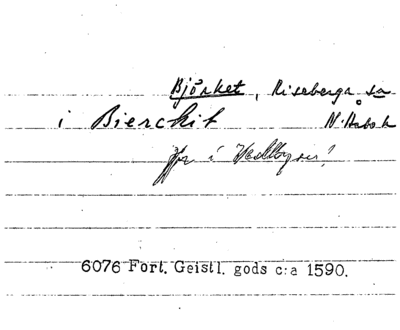 Björket, Riseberga sn
i Bierckit N. Åsbo h
Jfr i Vedbyssn!
6076 Fort. Geistl. gods c:a 1590.